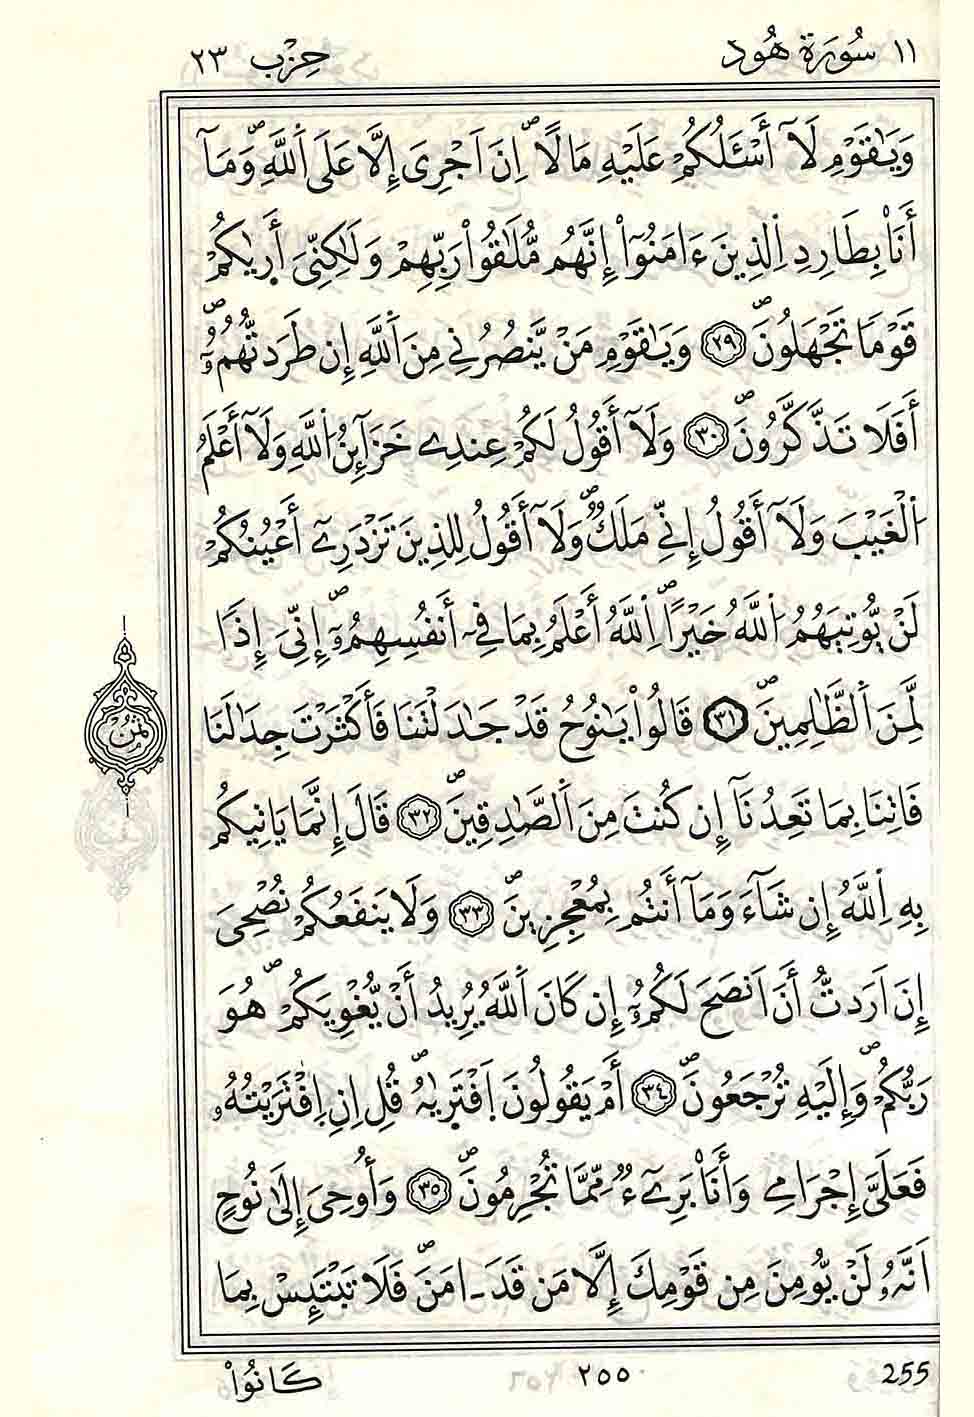 ١١ سُورَةُ هُود
حِزْب ٢٣
وَيَٰقَوْمِ لَآ أَسْـَٔلُكُمْ عَلَيْهِ مَالًاۖ اِنَ اَجْرِىَ إِلَّا عَلَى اَ۬للَّهِۖ وَمَآ
أَنَا۠ بِطَارِدِ اِ۬لذِينَ ءَامَنُوٓا۟ إِنَّهُم مُّلَٰقُوا۟ رَبِّهِمْ وَلَٰكِنِّىَ أَر۪يٰكُمْ
قَوْمٗا تَجْهَلُونَۖ ٢٩ وَيَٰقَوْمِ مَنْ يَّنصُرُنِے مِنَ اَ۬للَّهِ إِن طَرَدتُّهُمُۥٓۖ
أَفَلَا تَذَّكَّرُونَۖ ٣٠ وَلَآ أَقُولُ لَكُمْ عِندِے خَزَآئِنُ اُ۬للَّهِ وَلَآ أَعْلَمُ
اُ۬لْغَيْبَ وَلَآ أَقُولُ إِنِّے مَلَكٞۖ وَلَآ أَقُولُ لِلذِينَ تَزْدَرِےٓ أَعْيُنُكُمْ
لَنْ يُّوتِيَهُمُ اُ۬للَّهُ خَيْراًۖ اِ۬للَّهُ أَعْلَمُ بِمَا فِےٓ أَنفُسِهِمُۥٓۖ إِنِّىَ إِذاٗ
لَّمِنَ اَ۬لظَّٰلِمِينَۖ ٣١ قَالُوا۟ يَٰنُوحُ قَدْ جَٰدَلْتَنَا فَأَكْثَرْتَ جِدَٰلَنَا
فَاتِنَا بِمَا تَعِدُنَآ إِن كُنتَ مِنَ اَ۬لصَّٰدِقِينَۖ ٣٢ قَالَ إِنَّمَا يَاتِيكُم
بِهِ اِ۬للَّهُ إِن شَآءَ وَمَآ أَنتُم بِمُعْجِزِينَۖ ٣٣ وَلَا يَنفَعُكُمْ نُصْحِىَ
إِنَ اَرَدتُّ أَنَ اَنصَحَ لَكُمُۥٓ إِن كَانَ اَ۬للَّهُ يُرِيدُ أَنْ يُّغْوِيَكُمْۖ هُوَ
رَبُّكُمْۖ وَإِلَيْهِ تُرْجَعُونَۖ ٣٤ أَمْ يَقُولُونَ اَ۪فْتَر۪يٰهُۖ قُلِ اِنِ اِ۪فْتَرَيْتُهُۥ
فَعَلَىَّ إِجْرَامِے وَأَنَا۠ بَرِےٓءٞ مِّمَّا تُجْرِمُونَۖ ٣٥ وَأُوحِىَ إِلَىٰ نُوحٍ
اَنَّهُۥ لَنْ يُّومِنَ مِن قَوْمِكَ إِلَّا مَن قَدَ ـ امَنَۖ فَلَا تَبْتَئِسْ بِمَا
ثُمُن
كَانُوا۟
٢٥٥
255